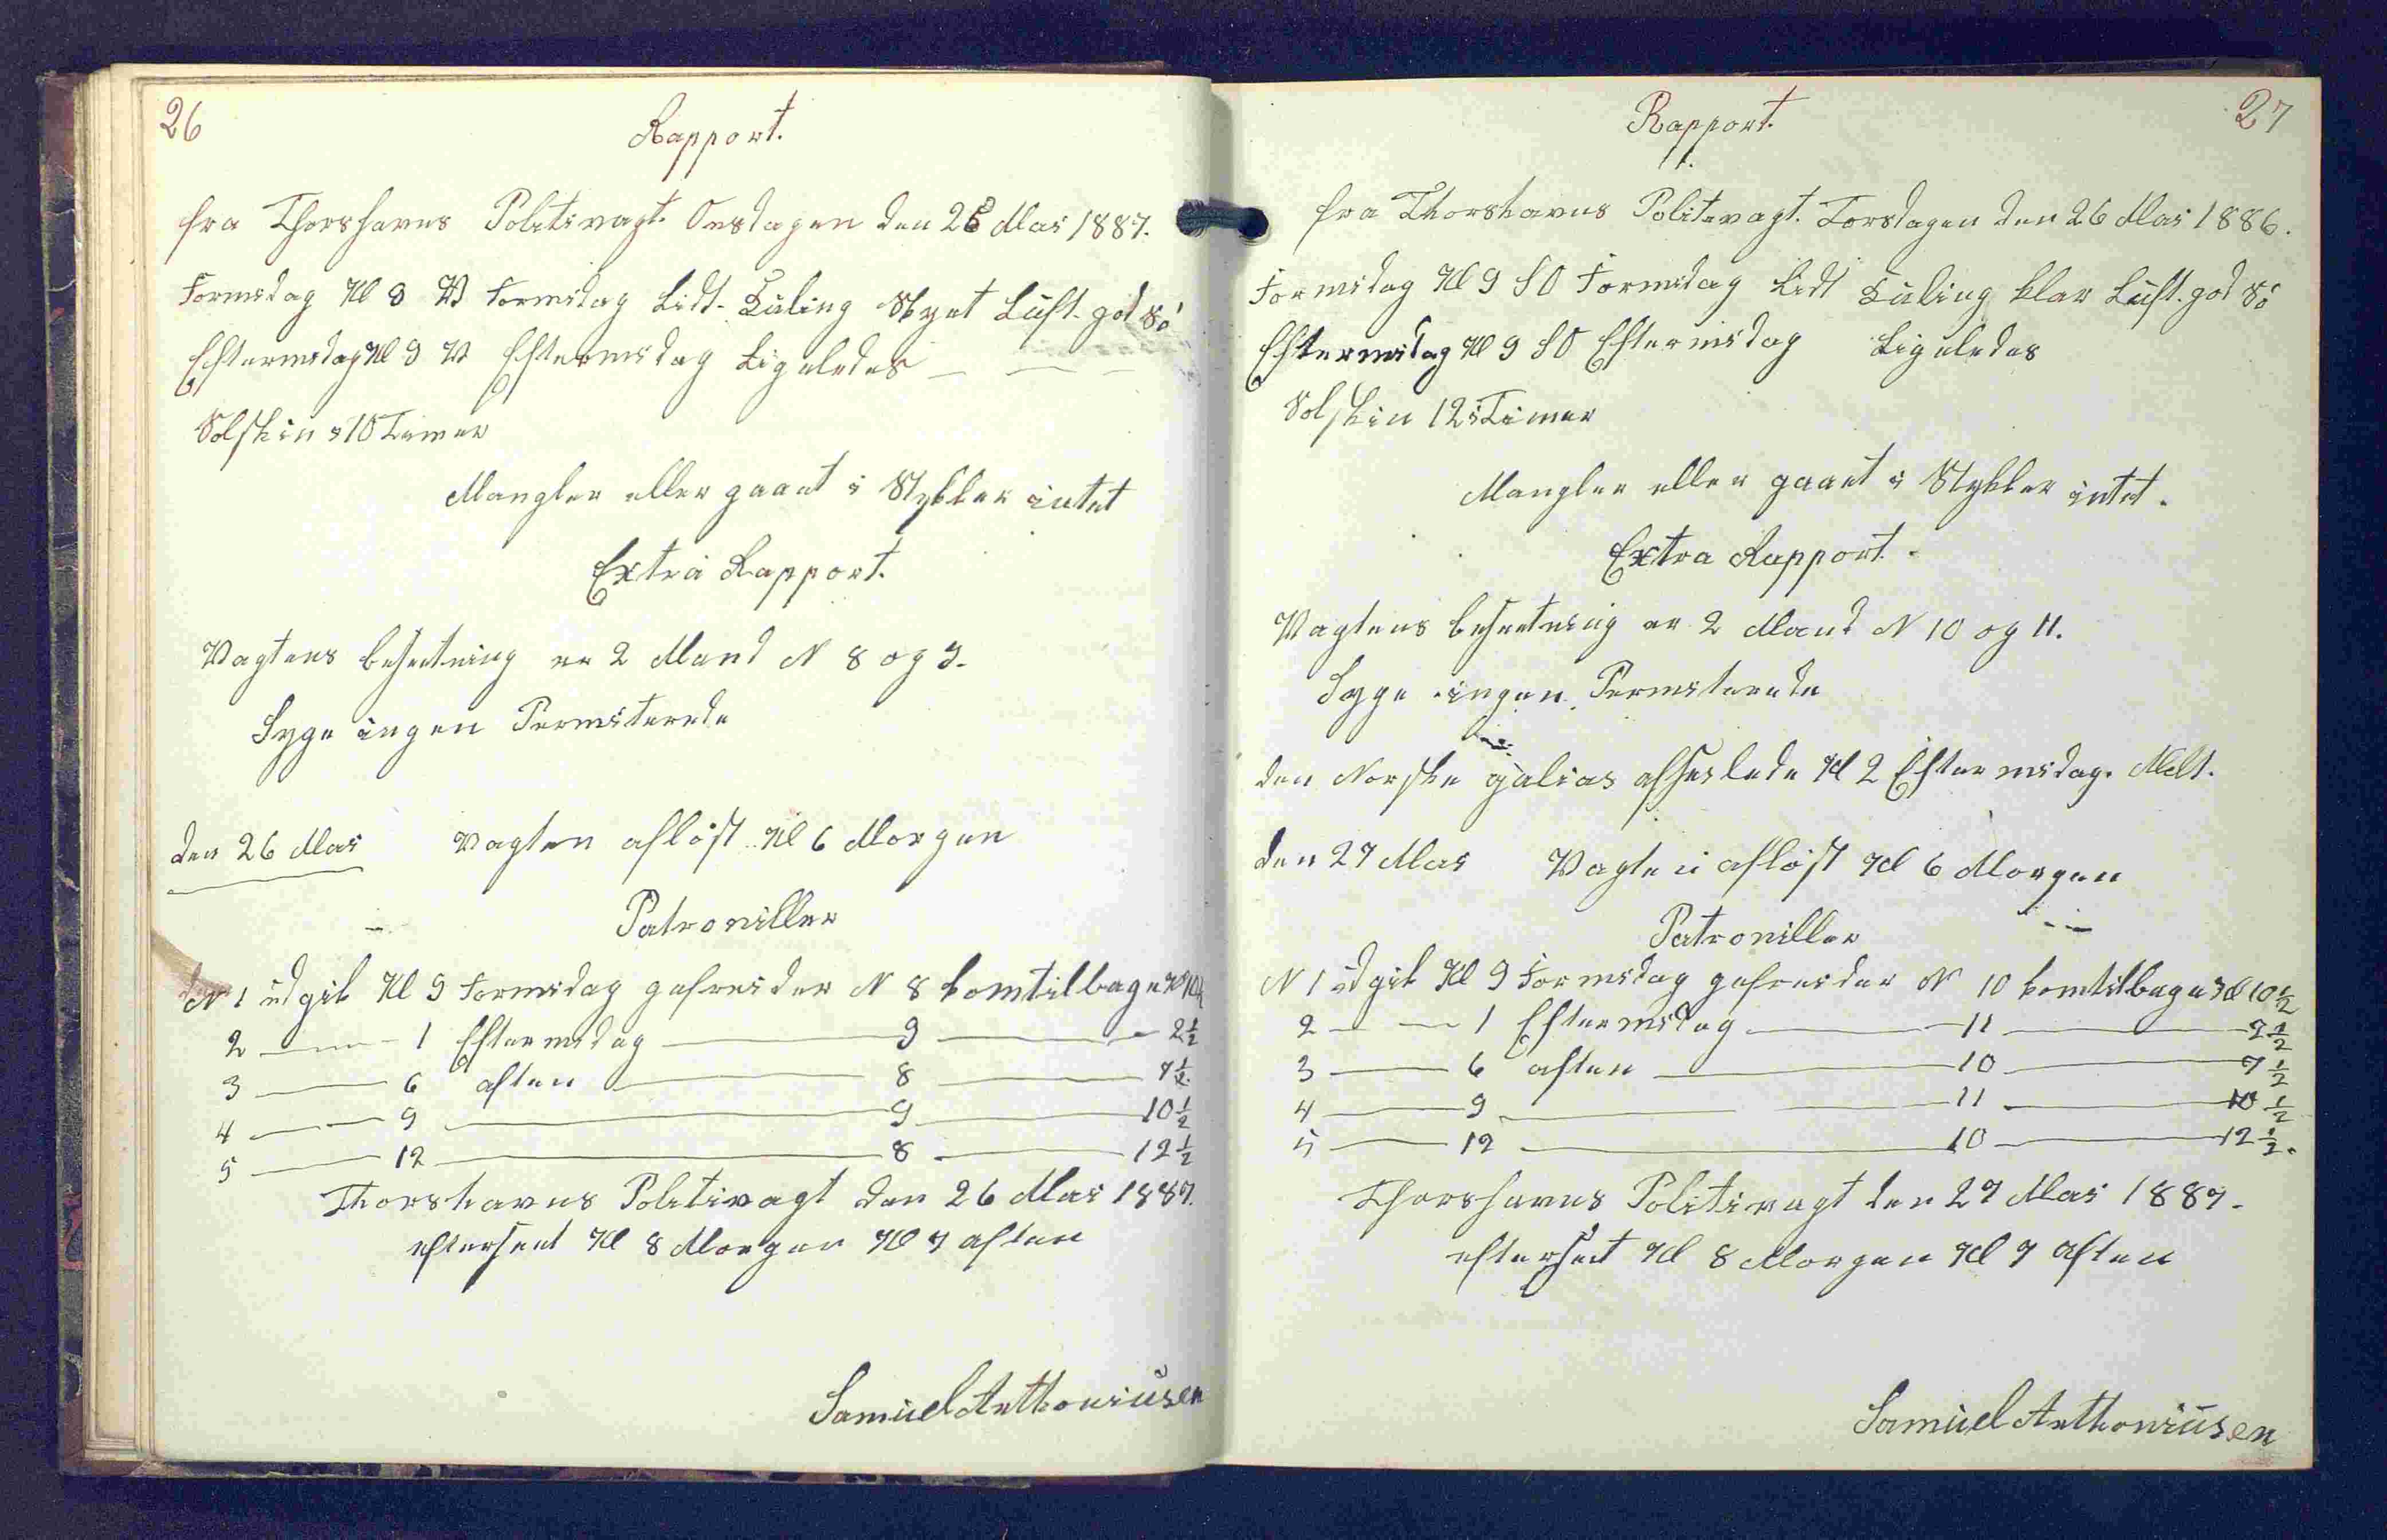 26
Rapport.
fra Thorshavns Politivagt. Onsdagen den 25 Mai 1887.
Formidag Kl 9 V Formidag Lidt Kuling Skyet Luft. god Sö
Eftermidag Kl 9 V Eftermidag Ligeledes — — —
Solskin i 10 Timer
Mangler eller gaaet i Stykker intet
Extra Rapport.
Vagtens besætning er 2 Mand N 8 og 9.
Syge ingen Permiterede
den 26 Mai Vagten afløst Kl 6 Morgen
Patroniller
N 1 udgik Kl 9 Formidag gefreider N 8 komtilbage Kl 10½
2 — — 1 Eftermidag — 9 — 2½
3 — 6 aften — 8 — 7½
4 — 9 — 9 — 10½
5 — 12 — 8 — 12½
Thorshavns Politivagt den 26 Mai 1887.
efterseet Kl 8 Morgen Kl 7 aften
Samuel Anthoniusen
27
Rapport.
fra Thorshavns Politivagt. Torsdagen den 26 Mai 1886.
Formidag Kl 9 SO Formidag Lidt Kuling klar Luft. god Sö
Eftermidag Kl 9 SO Eftermidag Ligeledes
Solskin 12 i Timer
Mangler eller gaaet i Stykker intet.
Extra Rapport.
Vagtens besætning er 2 Mand N 10 og 11.
Syge ingen Permiterede
den Norske galias afseilede Kl 2 Eftermidag.
den 27 Mai Vagten afløst Kl 6 Morgen
Patroniller
N 1 udgik Kl 9 Formidag gefreider N 10 komtilbage Kl 10½
2 — — 1 Eftermidag — 11 — 2½
3 — 6 aften — 10 — 7½
4 — 9 — 11 — 10½
5 — 12 — 10 — 12½.
Thorshavns Politivagt den 27 Mai 1887.
efterseet Kl 8 Morgen Kl 7 Aften
Samuel Anthoniusen